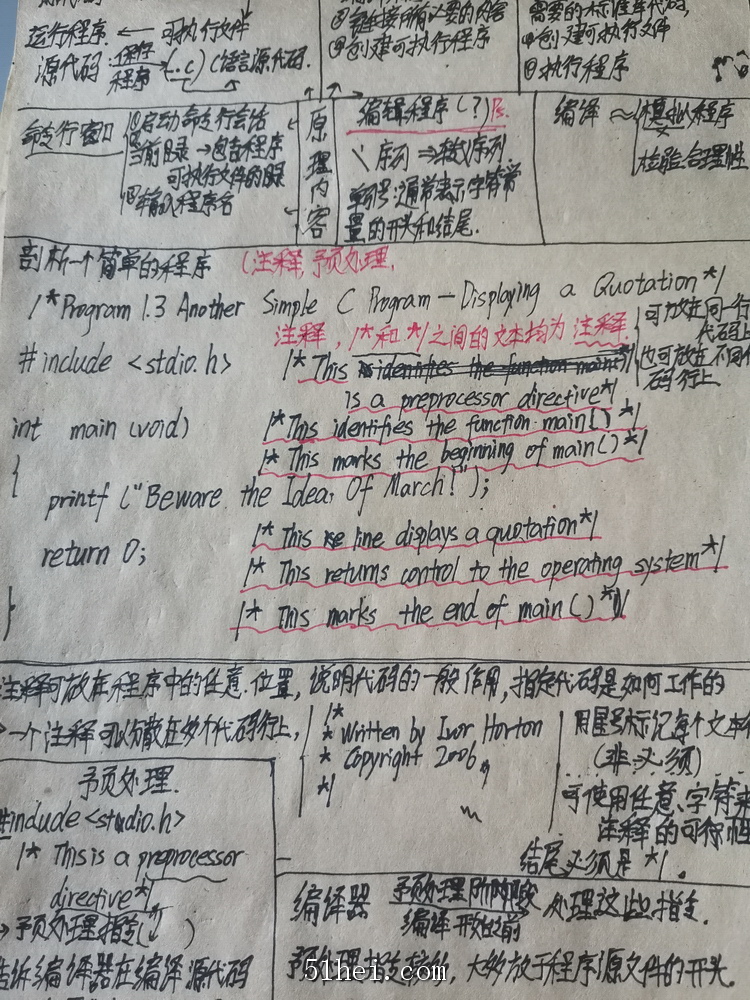 运行程序 ← 可执行文件
源代码:保存程序→(.c) C语言源代码.
②链接所需必要的内容
③创建可执行文件
需要的标准库代码,
④创建可执行文件
⑤执行程序
命令行窗口
①启动命令行会话
②当前目录→包含程序
可执行文件的目录
③输入程序名
原理内容
编辑程序(?)
\ 序列 ⇒转义序列
单引号:通常表示字符常
量的开头和结尾.
编译 ≈
模拟程序
检验合理性
剖析一个简单的程序 (注释,予页处理,
/*Program 1.3 Another Simple C Program — Displaying a Quotation*/
注释, /*和*/之间的文本均为 注释.
可放在同一行
代码上
也可放在不同代
码行上
#include <stdio.h> /* This identifies the function main
is a preprocessor directive*/
int main(void) /*This identifies the function main() */
{ /* This marks the beginning of main() */
printf ("Beware the Idea, Of March!");
/* This line displays a quotation*/
return 0; /* This returns control to the operating system*/
} /* This marks the end of main() */
注释可放在程序中的任意位置, 说明代码的一般作用,指定代码是如何工作的
→一个注释可以分散在多个代码行上,
/*
* Written by Ivor Horton
* Copyright 2006
*/
用星号标记每个文本行
(非必须)
可使用任意字符来
注释的可行性
结尾必须是 */.
予页处理.
#include <studio.h>
/* This is a preprocessor
directive*/
→予页处理指令( )
告诉编译器在编译源代码
编译器 予页处理阶段 处理这些指令.
编译开始之前
大多放于程序源文件的开头.
51hei.com